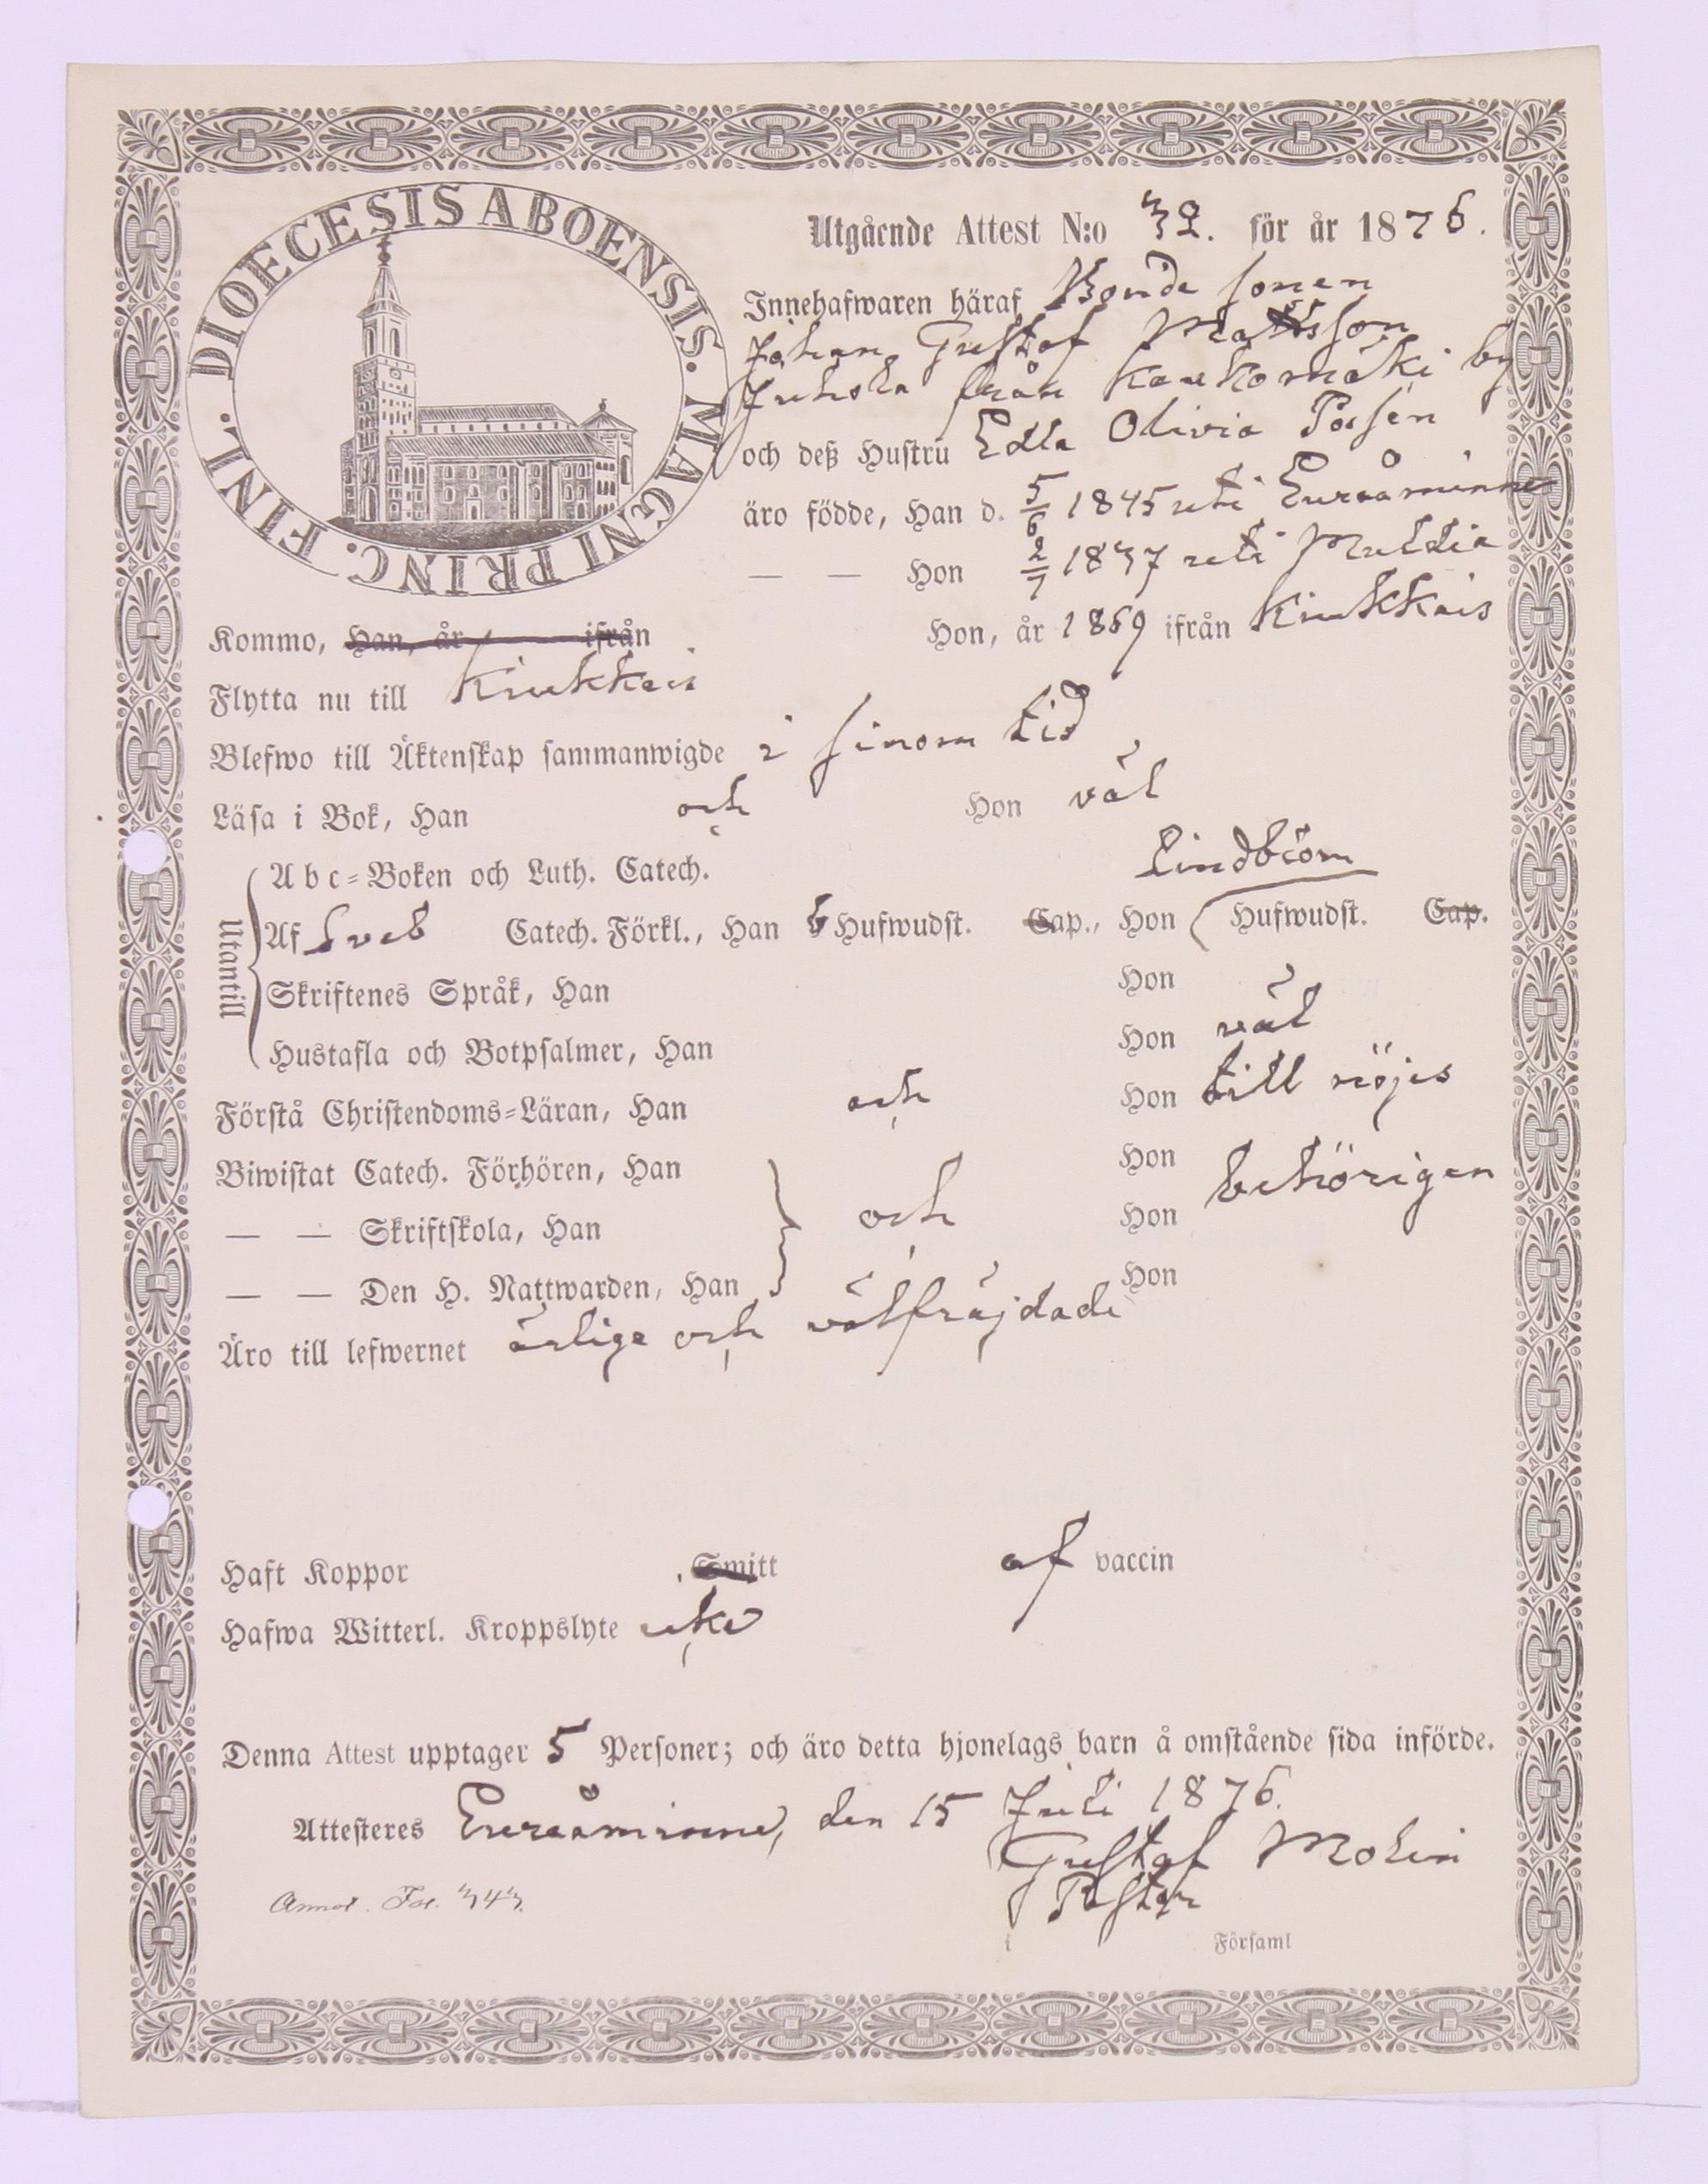 DIOECESIS ABOENSIS. MAGNI PRINC. FINL.
Utgående Attest N:o 32. för år 1876.
Innehafwaren häraf Bonde sonen
Johan Gustaf Mattsson
Juhola från Kaukomäki by
och deß Hustru Edla Olivia
äro födde, Han d. 5/6 1845 uti Euraåminne
— — Hon 2/7 1837 uti Multia
Kommo, Han, år ifrån Hon, år 1869 ifrån Kiukkais
Flytta nu till Kiukkais
Blefwo till Äktenskap sammanwigde i sinom tid
Läsa i Bok, Han och Hon väl
Utantill
Abc-Boken och Luth. Catech. Lindblom
Af Sveb Catech. Förkl., Han 6 Hufwudst. Cap., Hon ( Hufwudst. Cap.
Skriftenes Språk, Han Hon
Hustafla och Botpsalmer, Han Hon väl
Förstå Christendoms-Läran, Han och Hon till nöjes
Biwistat Catech. Förhören, Han Hon
— — Skriftskola, Han och Hon behörigen
— — Den H. Nattwarden, Han Hon
Äro till lefwernet ärliga och välfräjdade
Haft Koppor Smitt af vaccin
Hafwa Witterl. Kroppslyte icke
Denna Attest upptager 5 Personer; och äro detta hjonelags barn å omstående sida införde.
Attesteres Euraåminne, den 15 Juli 1876.
Gustaf Molin
Annot. Fol. 343. Pastor
i Församl